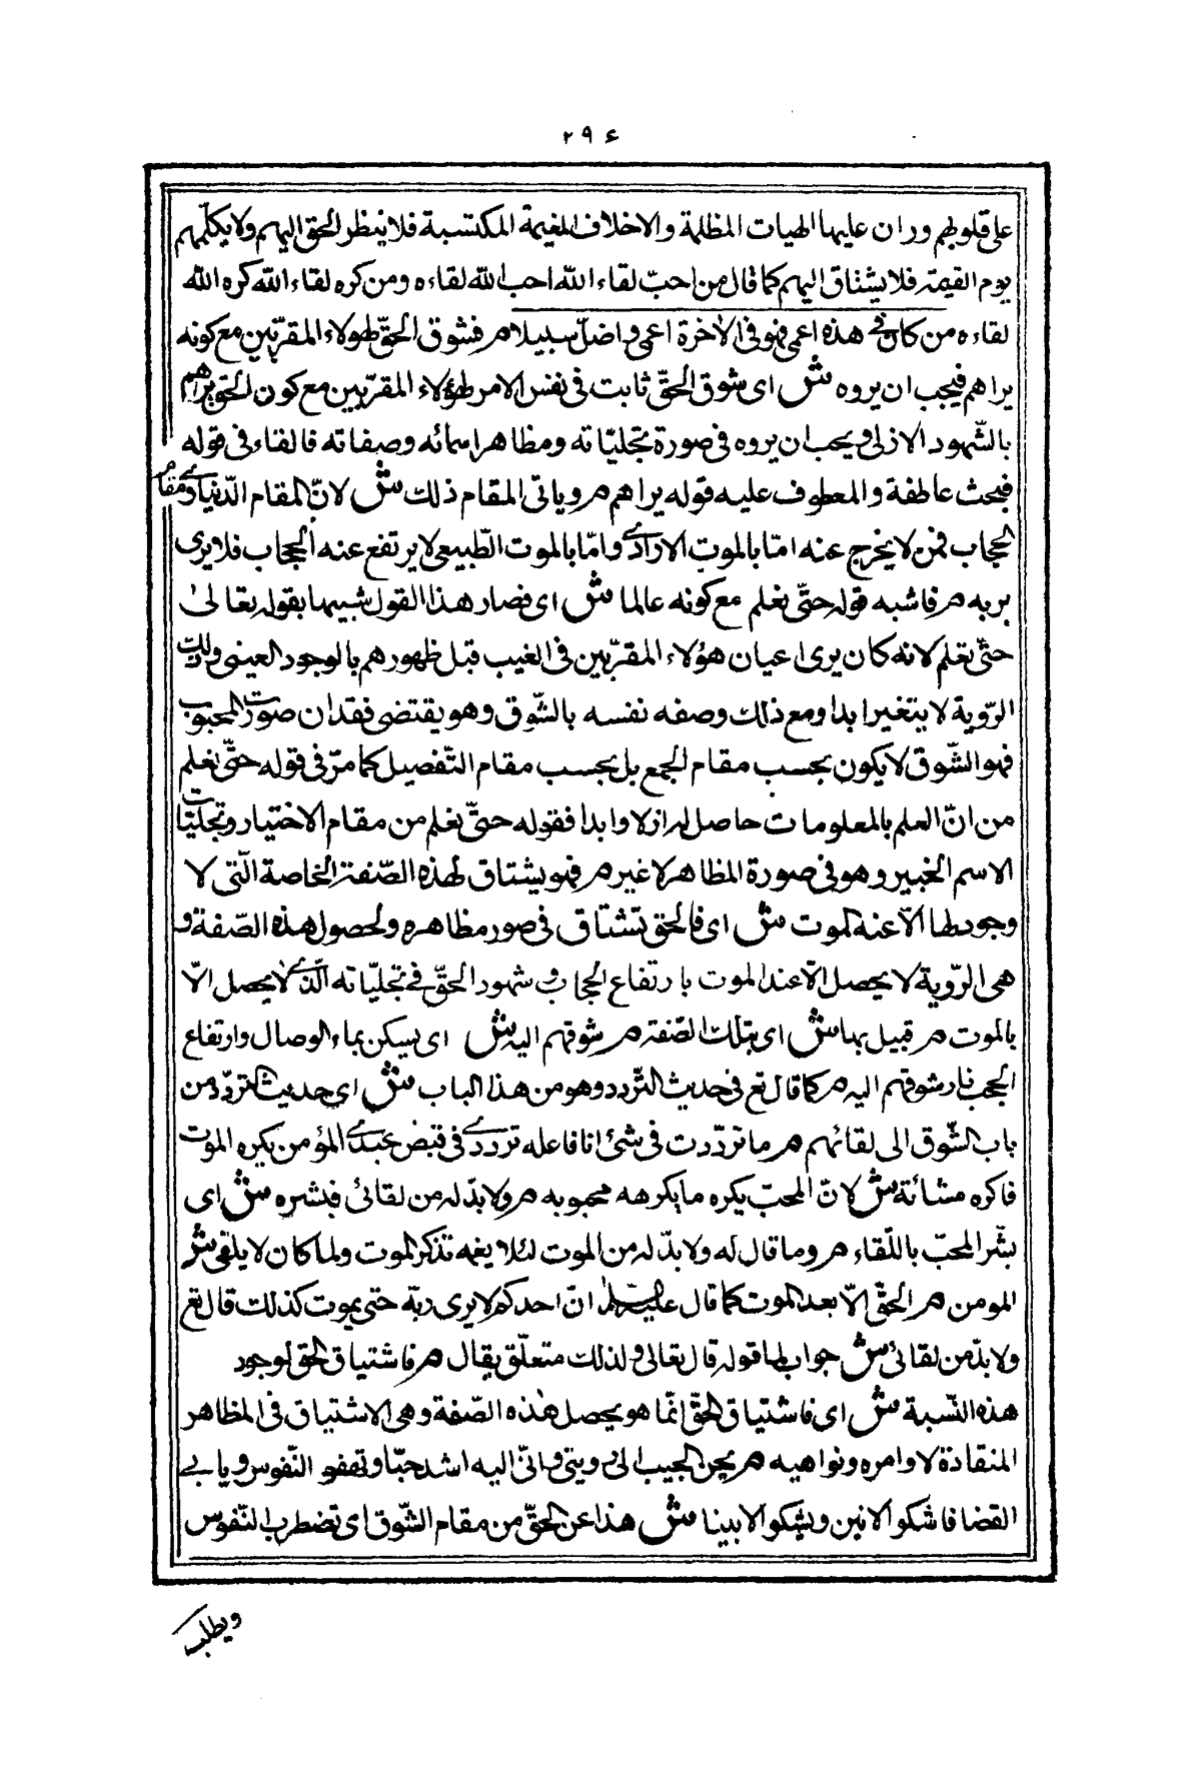 ۲۹۶
على قلوبهم وران عليها الهيات المظلمة والاخلاف المغيمة المكتسبة فلا ينظر الحق اليهم ولا يكلّمهم
يوم القيمة فلا يشتاق اليهم كما قال من احبّ لقاء الله احب الله لقاءه ومن كره لقاء الله كره الله
لقاءه من كان فى هذه اعمى فهو فى الاخرة اعمى واضلّ سبيلا مر فشوق الحقّ لهولاء المقرّبين مع كونه
يراهم فيجب ان يروه ش اى شوق الحقّ ثابت فى نفس الامر لهؤلاء المقرّبين مع كون الحق يراهم
بالشّهود الازلى ويحب ان يروه فى صورة تجليّاته ومظاهر اسمائه وصفاته فالفاء فى قوله
فيحث عاطفة والمعطوف عليه قوله يراهم مر وياتى المقام ذلك ش لانّ المقام الدّنياوى مقام
الحجاب فمن لا يخرج عنه امّا بالموت الارادى وامّا بالموت الطّبيعى لا يرتفع عنه الحجاب فلا يرى
بربه مر فاشبه قوله حتّى نعلم مع كونه عالما ش اى فصار هذا القول شبيها بقوله تعالى
حتّى نعلم لانه كان يرى اعيان هؤلاء المقرّبين فى الغيب قبل ظهورهم بالوجود العينى وذلك
الرّوية لا يتغير ابدا ومع ذلك وصفه نفسه بالشّوق وهو يقتضى فقدان صورت المحبوب
فهو الشّوق لا يكون بحسب مقام الجمع بل بحسب مقام التّفصيل كما مرّ فى قوله حتّى نعلم
من انّ العلم بالمعلومات حاصل له ازلا وابدا فقوله حتىّ نعلم من مقام الاختيار وتجليّات
الاسم الخبير وهو فى صورة المظاهر لا غير مر فهو يشتاق لهذه الصّفة الخاصة الّتى لا
وجود لها الاّ عند الموت ش اى فالحق تشتاق فى صور مظاهره ولحصول هذه الصّفة و
هى الرّوية لا يحصل الاّ عند الموت بارتفاع الحجاب وشهود الحقّ فى تجليّاته الّذى لا يحصل الاّ
بالموت مر قبيل بها ش اى بتلك الصّفة مر شوقهم اليه ش اى يسكن بماء الوصال وارتفاع
الحجب نار شوقهم اليه مر كما قال تع فى حديث التّردد وهو من هذا الباب ش اى حديث التردّد من
باب الشّوق الى لقائهم مر ما تردّدت فى شئ انا فاعله تردّدى فى قبض عبدى المؤمن يكره الموت
فاكره مسائة ش لانّ المحبّ يكره ما يكرهه محبوبه مر ولا بدّ له من لقائى فبشره ش اى
بشّر المحبّ باللّقاء مر وما قال له ولا بدّ له من الموت لئلا يغمه تذكر الموت ولما كان لا يلقى ش
المومن مر الحقّ الاّ بعد الموت كما قال عليه السّلم انّ احدكم لا يرى ربّه حتى يموت كذلك قال تع
ولا بدّ من لقائى ش جواب لها قوله قال تعالى ولذلك متعلّق بقال مر فاشتياق الحق لوجود
هذه النّسبة ش اى فاشتياق الحقّ انمّا هو يحصل هذه الصّفة وهى الاشتياق فى المظاهر
المنقادة لاوامره ونواهيه مر يحنّ الحبيب الى رويتى وانّى اليه اشد حبّا وتهفو النّفوس ويابى
القضا فاشكو الانين ويشكو الابينا ش هذا عن الحقّ من مقام الشّوق اى تضطرب النّفوس
ويطلب